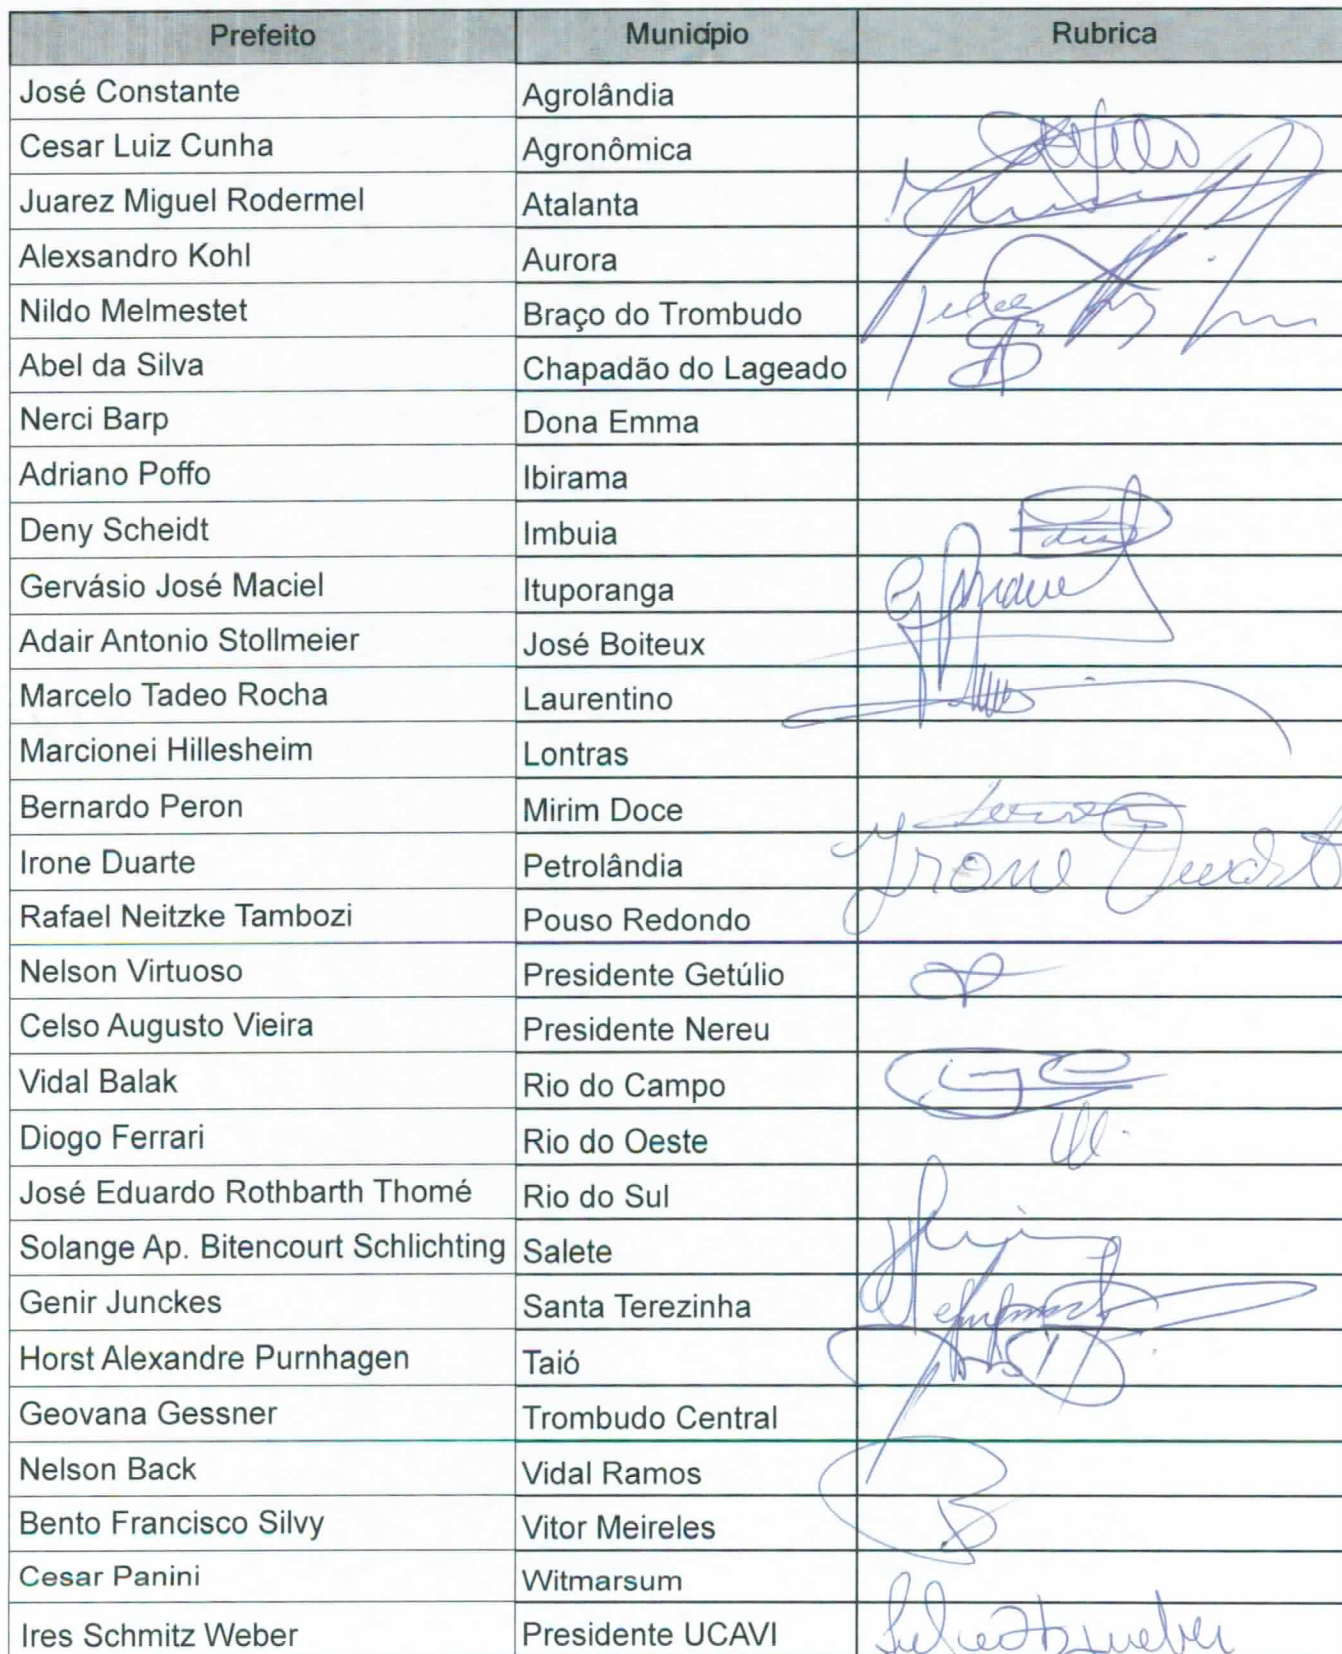 Prefeito Município Rubrica
José Constante Agrolândia
Cesar Luiz Cunha Agronômica
Juarez Miguel Rodermel Atalanta
Alexsandro Kohl Aurora
Nildo Melmestet Braço do Trombudo
Abel da Silva Chapadão do Lageado
Nerci Barp Dona Emma
Adriano Poffo Ibirama
Deny Scheidt Imbuia
Gervásio José Maciel Ituporanga
Adair Antonio Stollmeier José Boiteux
Marcelo Tadeo Rocha Laurentino
Marcionei Hillesheim Lontras
Bernardo Peron Mirim Doce
Irone Duarte Petrolândia Irone Duarte
Rafael Neitzke Tambozi Pouso Redondo
Nelson Virtuoso Presidente Getúlio
Celso Augusto Vieira Presidente Nereu
Vidal Balak Rio do Campo
Diogo Ferrari Rio do Oeste
José Eduardo Rothbarth Thomé Rio do Sul
Solange Ap. Bitencourt Schlichting Salete
Genir Junckes Santa Terezinha
Horst Alexandre Purnhagen Taió
Geovana Gessner Trombudo Central
Nelson Back Vidal Ramos
Bento Francisco Silvy Vitor Meireles
Cesar Panini Witmarsum
Ires Schmitz Weber Presidente UCAVI